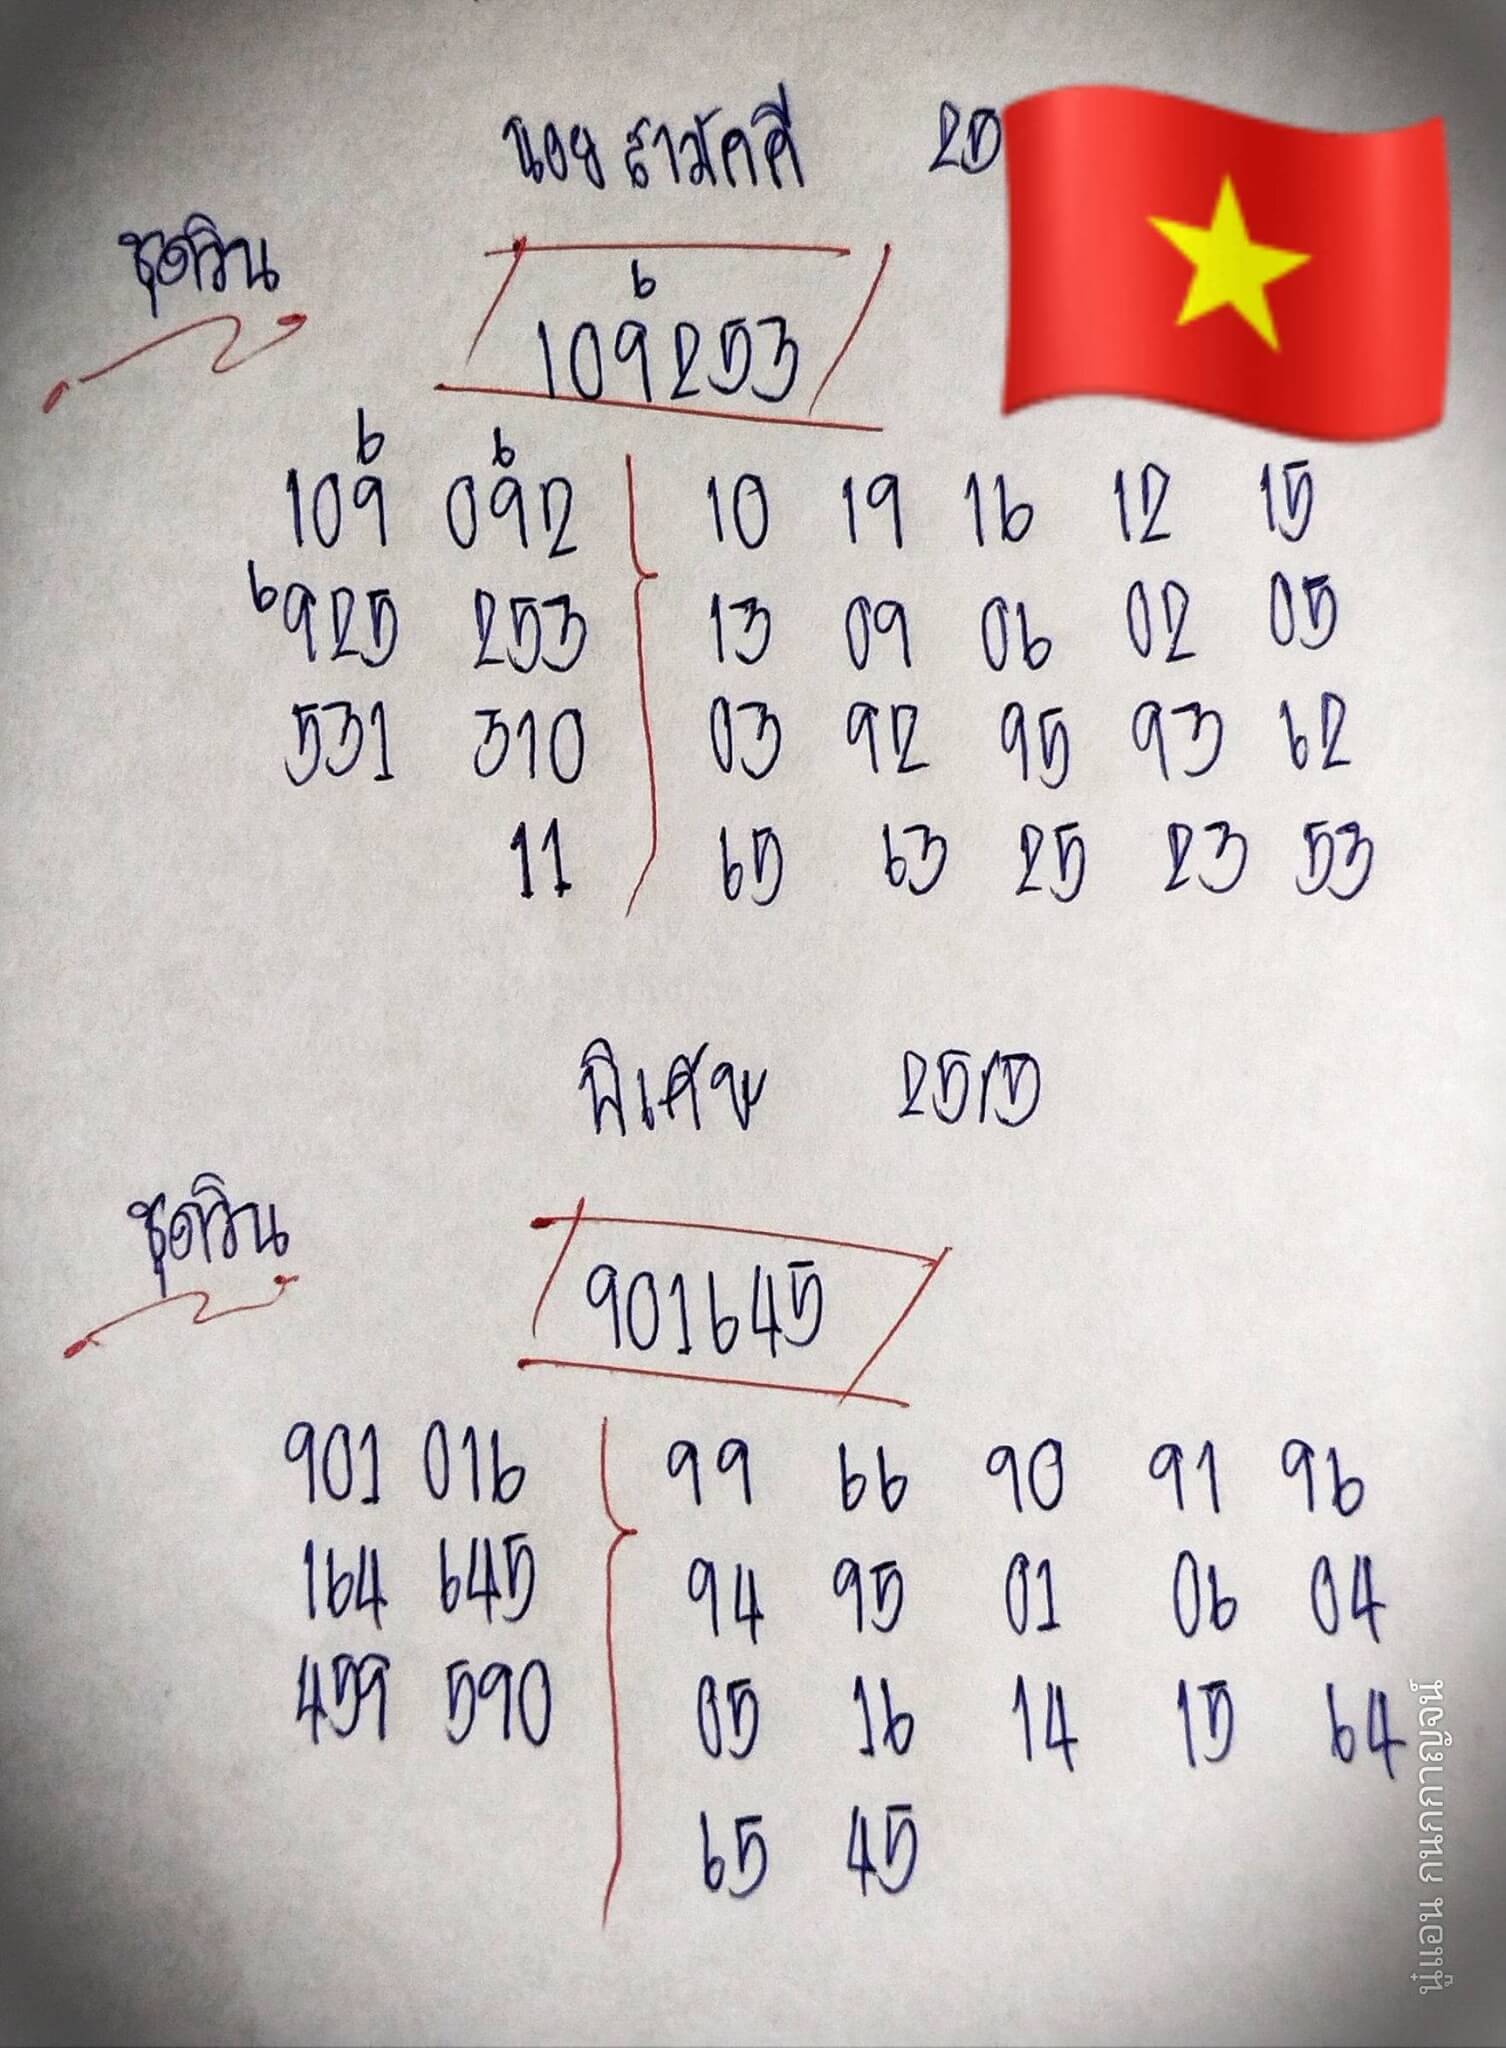 นอย สามัคคี 25
ชุดวิน
6
109253
6 6
109 092 10 19 16 12 15
6925 253 13 09 06 02 05
531 310 03 92 95 93 62
11 65 63 25 23 53
พิเศษ 25/5
ชุดวิน
901645
901 016 99 66 90 91 96
164 645 94 95 01 06 04
459 590 05 16 14 15 64
65 45
นู๋แอน กนกกาญจน์